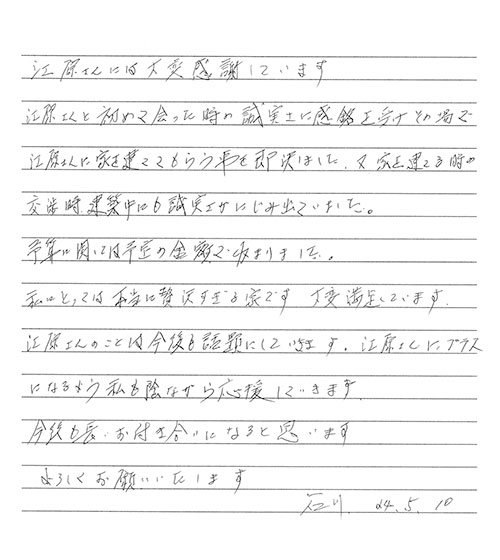 江原さんには大変感謝しています
江原さんと初めて会った時の誠実さに感銘を受けその場で
江原さんに家を建ててもらう事を即決しました。又家を建てる時の
交渉時建築中にも誠実さがにじみ出ていました。
予算に関しては予定の金額で収まりました。
私にとっては本当に贅沢すぎる家です 大変満足しています.
江原さんのことは今後も話題にしていきます. 江原さんにプラス
になるよう私も陰ながら応援していきます
今後も長いお付き合いになると思います
よろしくお願いいたします
石川. 24.5.10